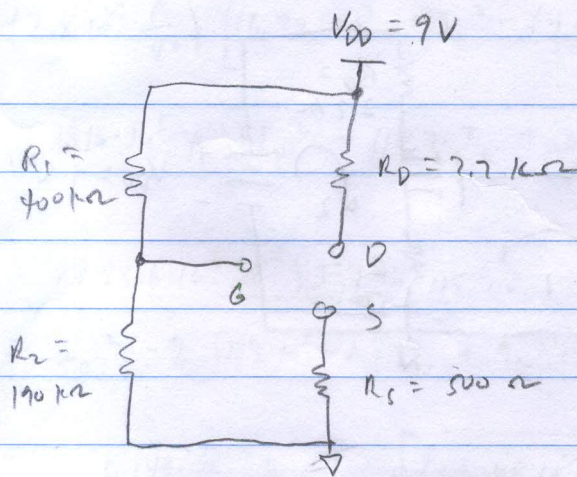 V_DD = 9V
R_1 =
400 kΩ
R_D = 2.2 kΩ
D
G
S
R_2 =
190 kΩ
R_S = 500 Ω